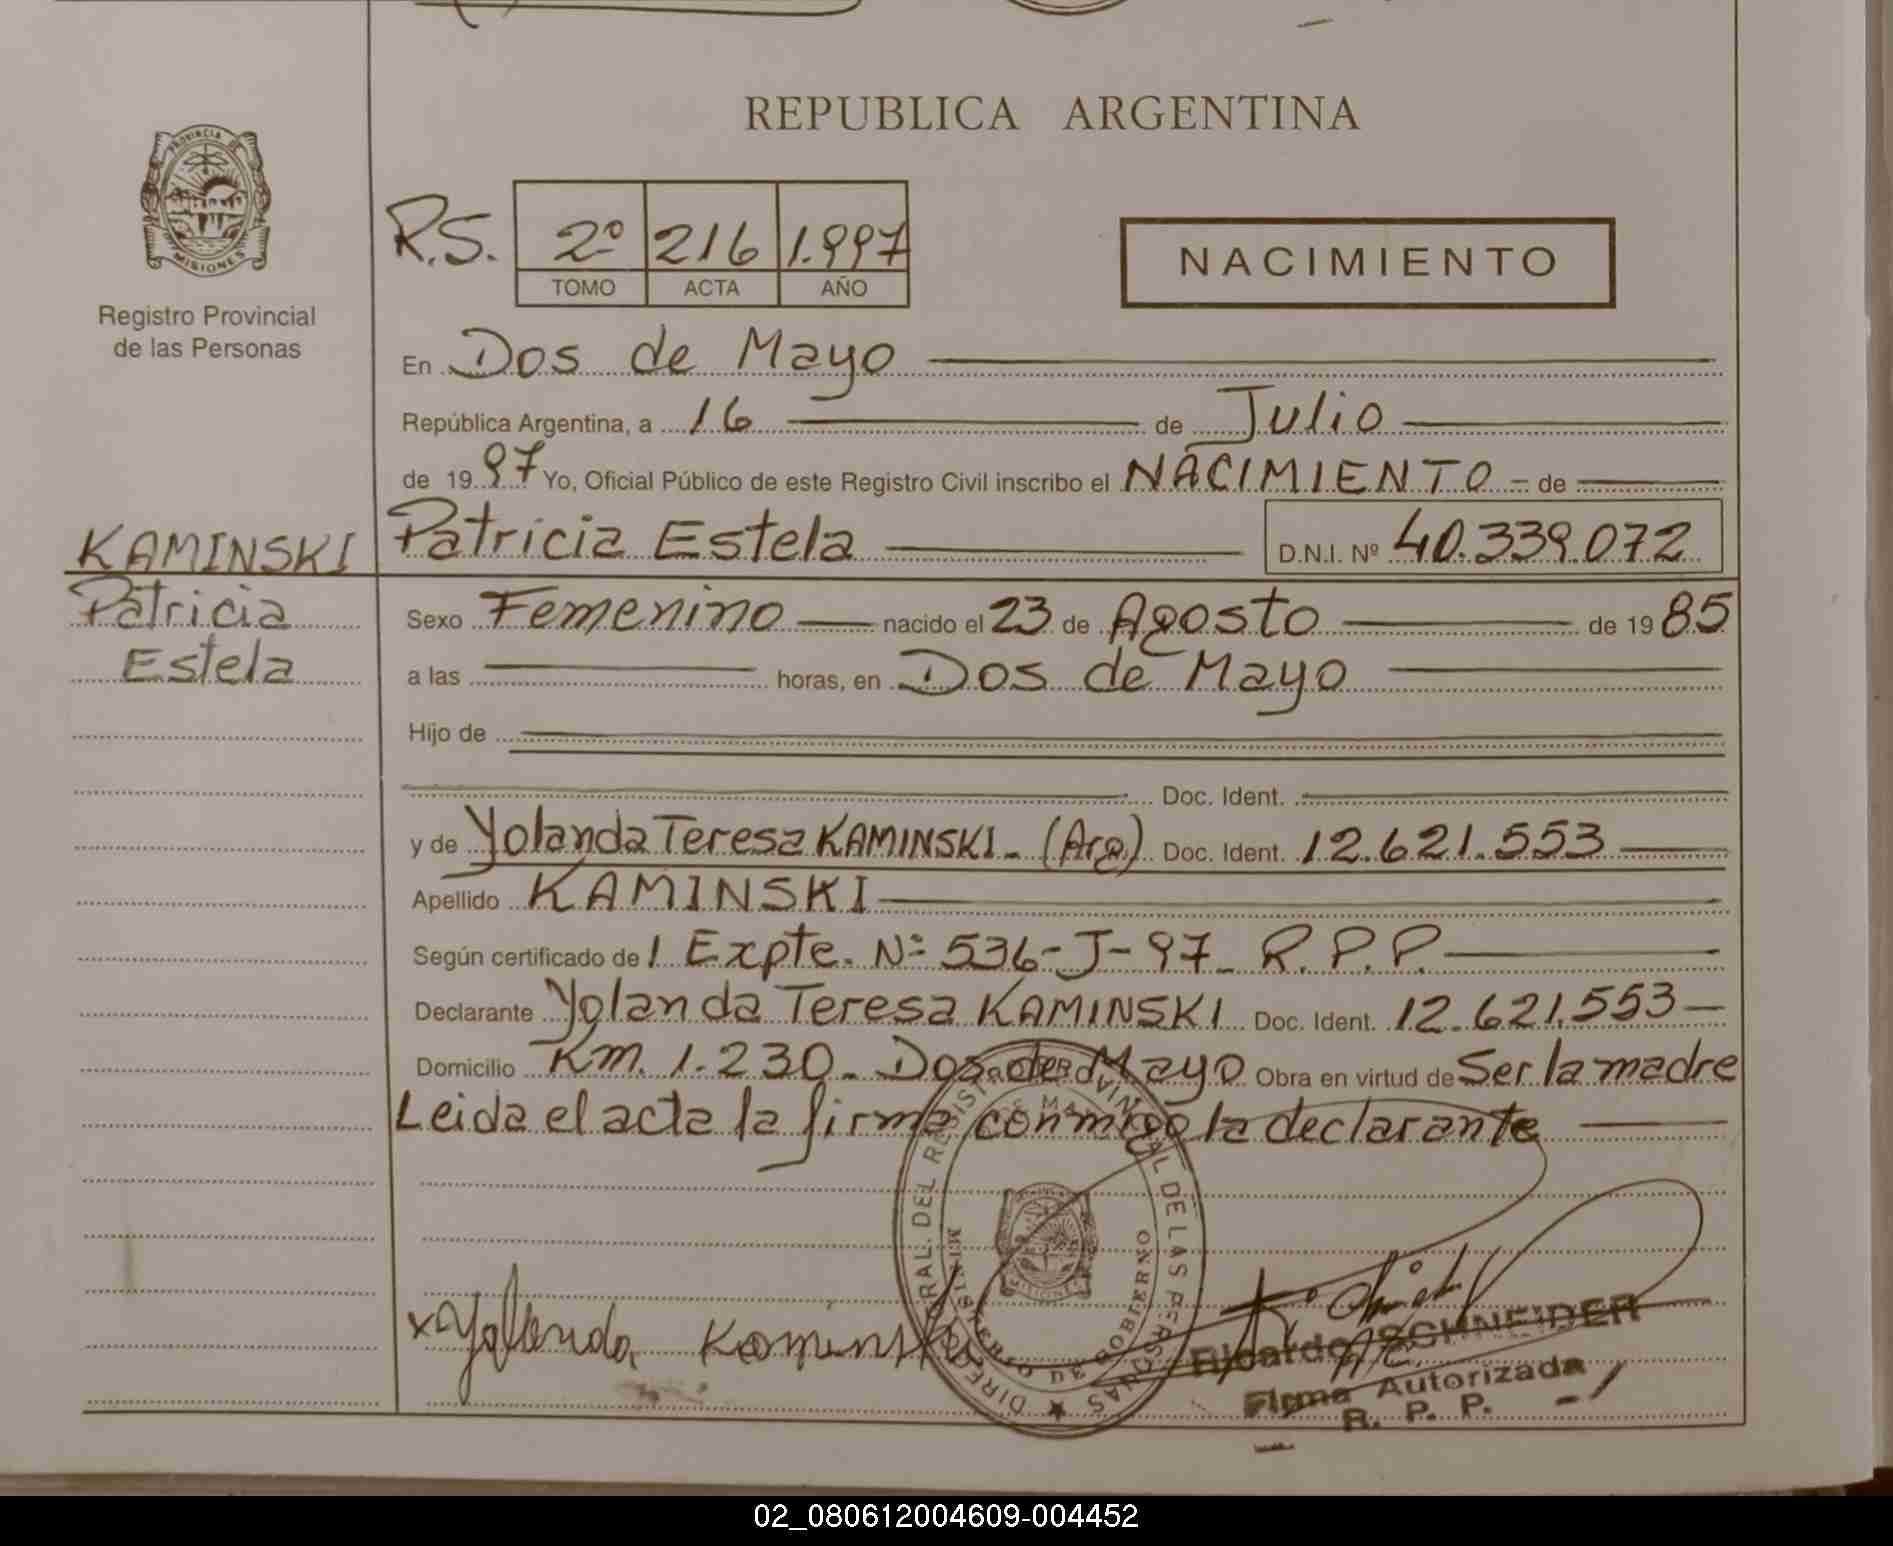 REPUBLICA ARGENTINA
PROVINCIA DE
MISIONES
Registro Provincial
de las Personas
R.S. 2º 216 1.997
TOMO ACTA AÑO
NACIMIENTO
En Dos de Mayo
República Argentina, a 16 de Julio
de 1997 Yo, Oficial Público de este Registro Civil inscribo el NACIMIENTO de
KAMINSKI
Patricia
Estela
Patricia Estela D.N.I. Nº 40.339.072
Sexo Femenino nacido el 23 de Agosto de 1985
a las horas, en Dos de Mayo
Hijo de
Doc. Ident.
y de Yolanda Teresa KAMINSKI.- (Arg.) Doc. Ident. 12.621.553
Apellido KAMINSKI
Según certificado de 1 Expte. Nº 536-J-97_ R.P.P.
Declarante Yolanda Teresa KAMINSKI Doc. Ident. 12.621.553
Domicilio Km. 1.230_ Dos de Mayo Obra en virtud de Ser la madre
Leida el acta la firma conmigo la declarante
x Yollanda Kaminski
MISIONES
MINISTERIO DE GOBIERNO
Ricardo SCHNEIDER
Firma Autorizada
R. P. P.
02_080612004609-004452